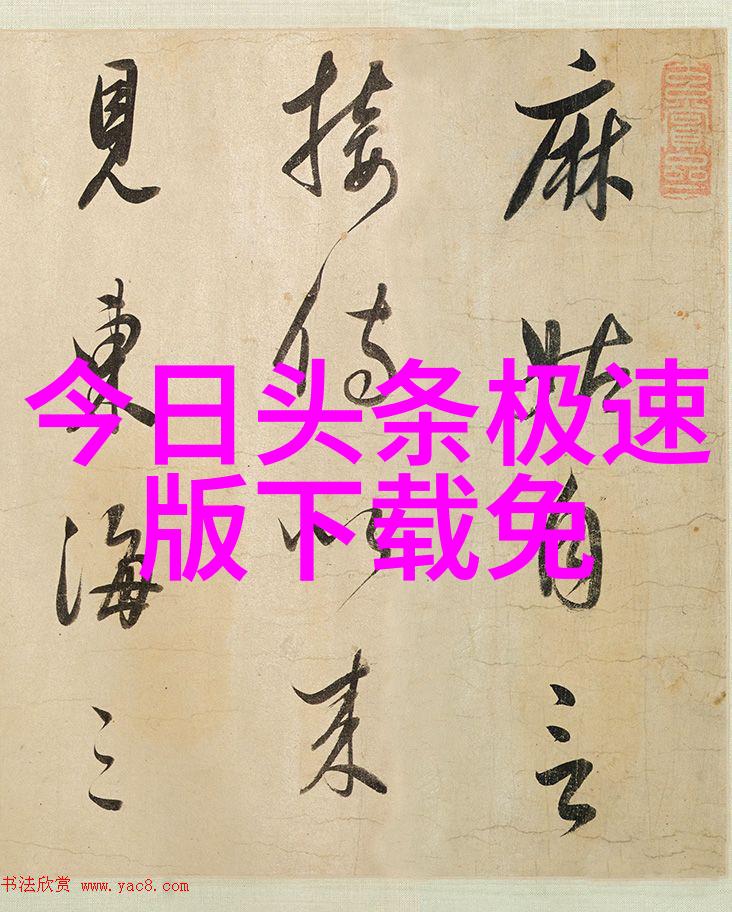 麻姑自言
接侍以来
見東海三
今日头条极速
版下载免
书法欣赏 www.yac8.com